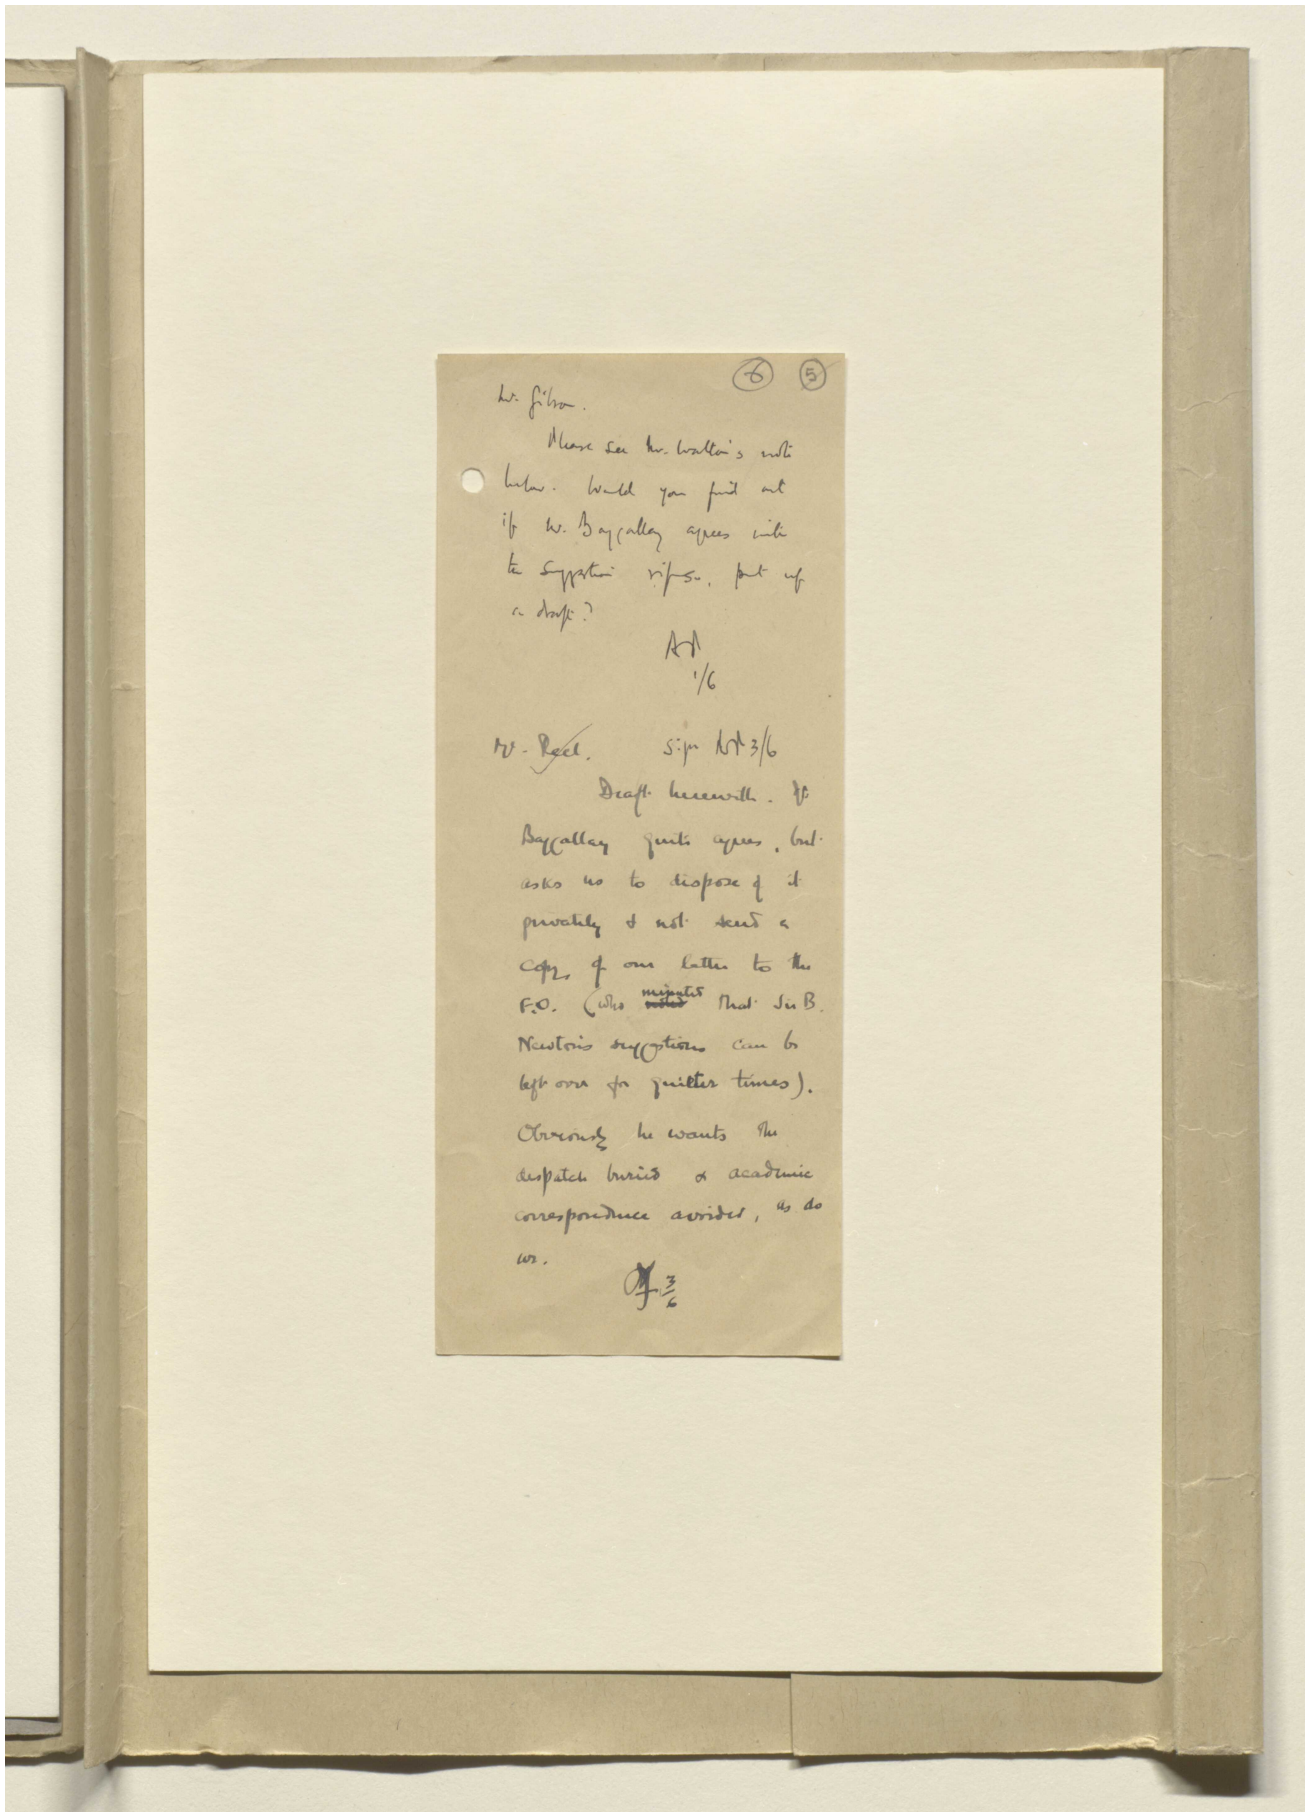 6 5
Mr. Gibson.
Please see Mr. Walton's note
below. Would you find out
if Mr. Baggallay agrees with
the suggestion &, if so, put up
a draft?
1/6
Mr. Peel. 3/6
Draft herewith. Mr
Baggallay quite agrees, but
asks us to dispose of it
privately & not send a
copy of our letter to the
F.O. (who noted minuted that Sir B.
Newton's suggestions can be
left over for quieter times).
Obviously he wants the
despatch buried & academic
correspondence avoided, as do
we.
3/6